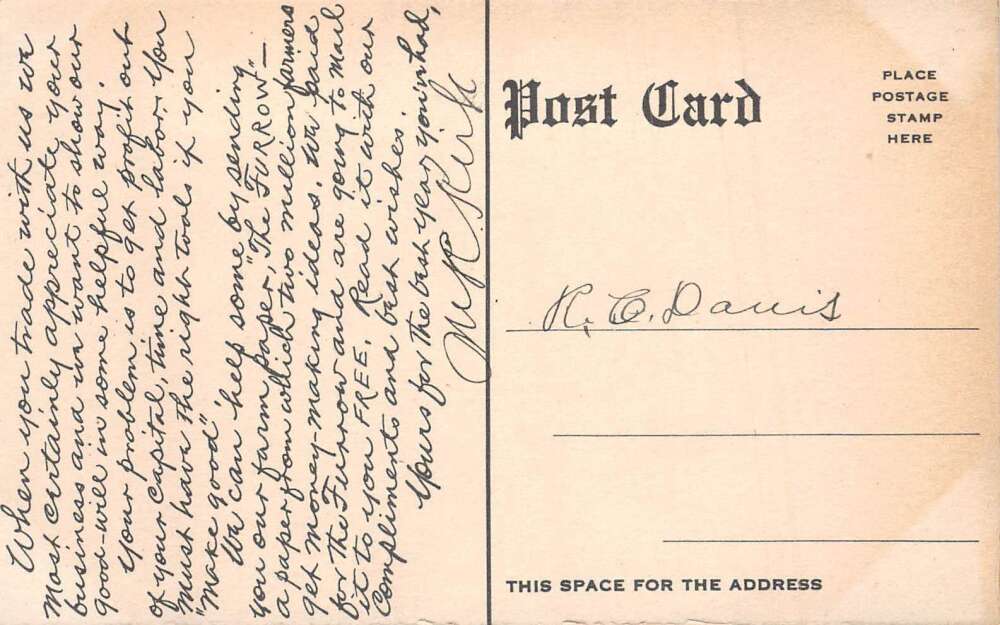 When you trade with us we
most certainly appreciate your
business and we want to show our
good-will in some helpful way.
Your problem is to get profit out
of your capital, time and labor. You
must have the right tools if you
"make good"
We can help some by sending
you our farm paper, "The FURROW"—
a paper from which two million farmers
get money-making ideas. We paid
for the Furrow and are going to mail
it to you FREE. Read it with our
Compliments and best wishes.
Yours for the best year you've had,
Post Card
PLACE
POSTAGE
STAMP
HERE
R. C. Davis
THIS SPACE FOR THE ADDRESS